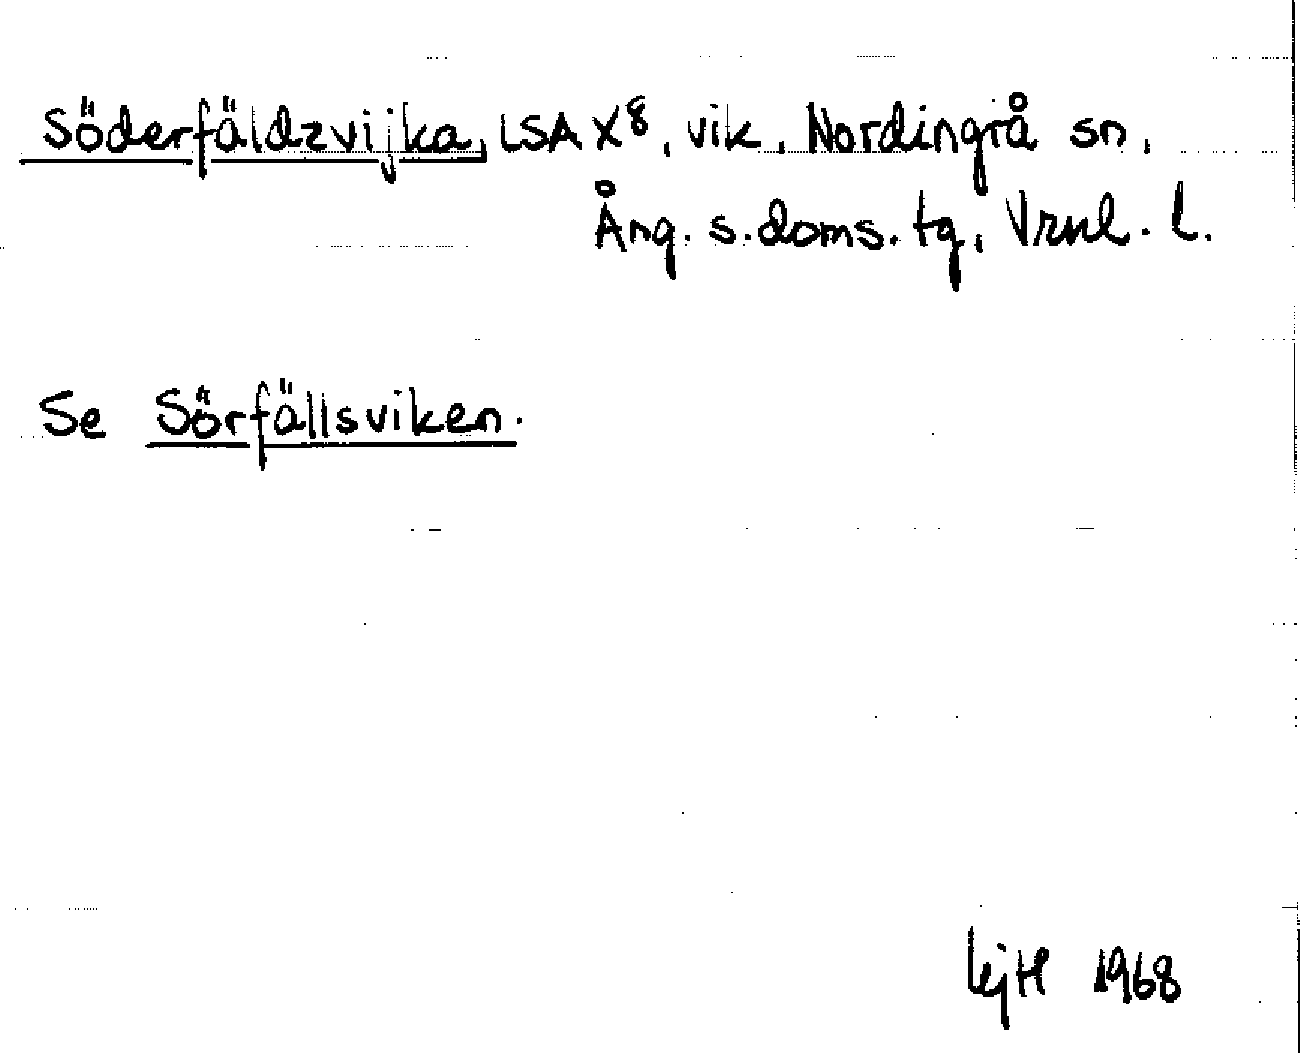 Söderfäldzvijka, LSA X⁸, vik, Nordingrå sn,
Ång. s. doms. tg, Vrnl. l.
Se Sörfällsviken.
1968